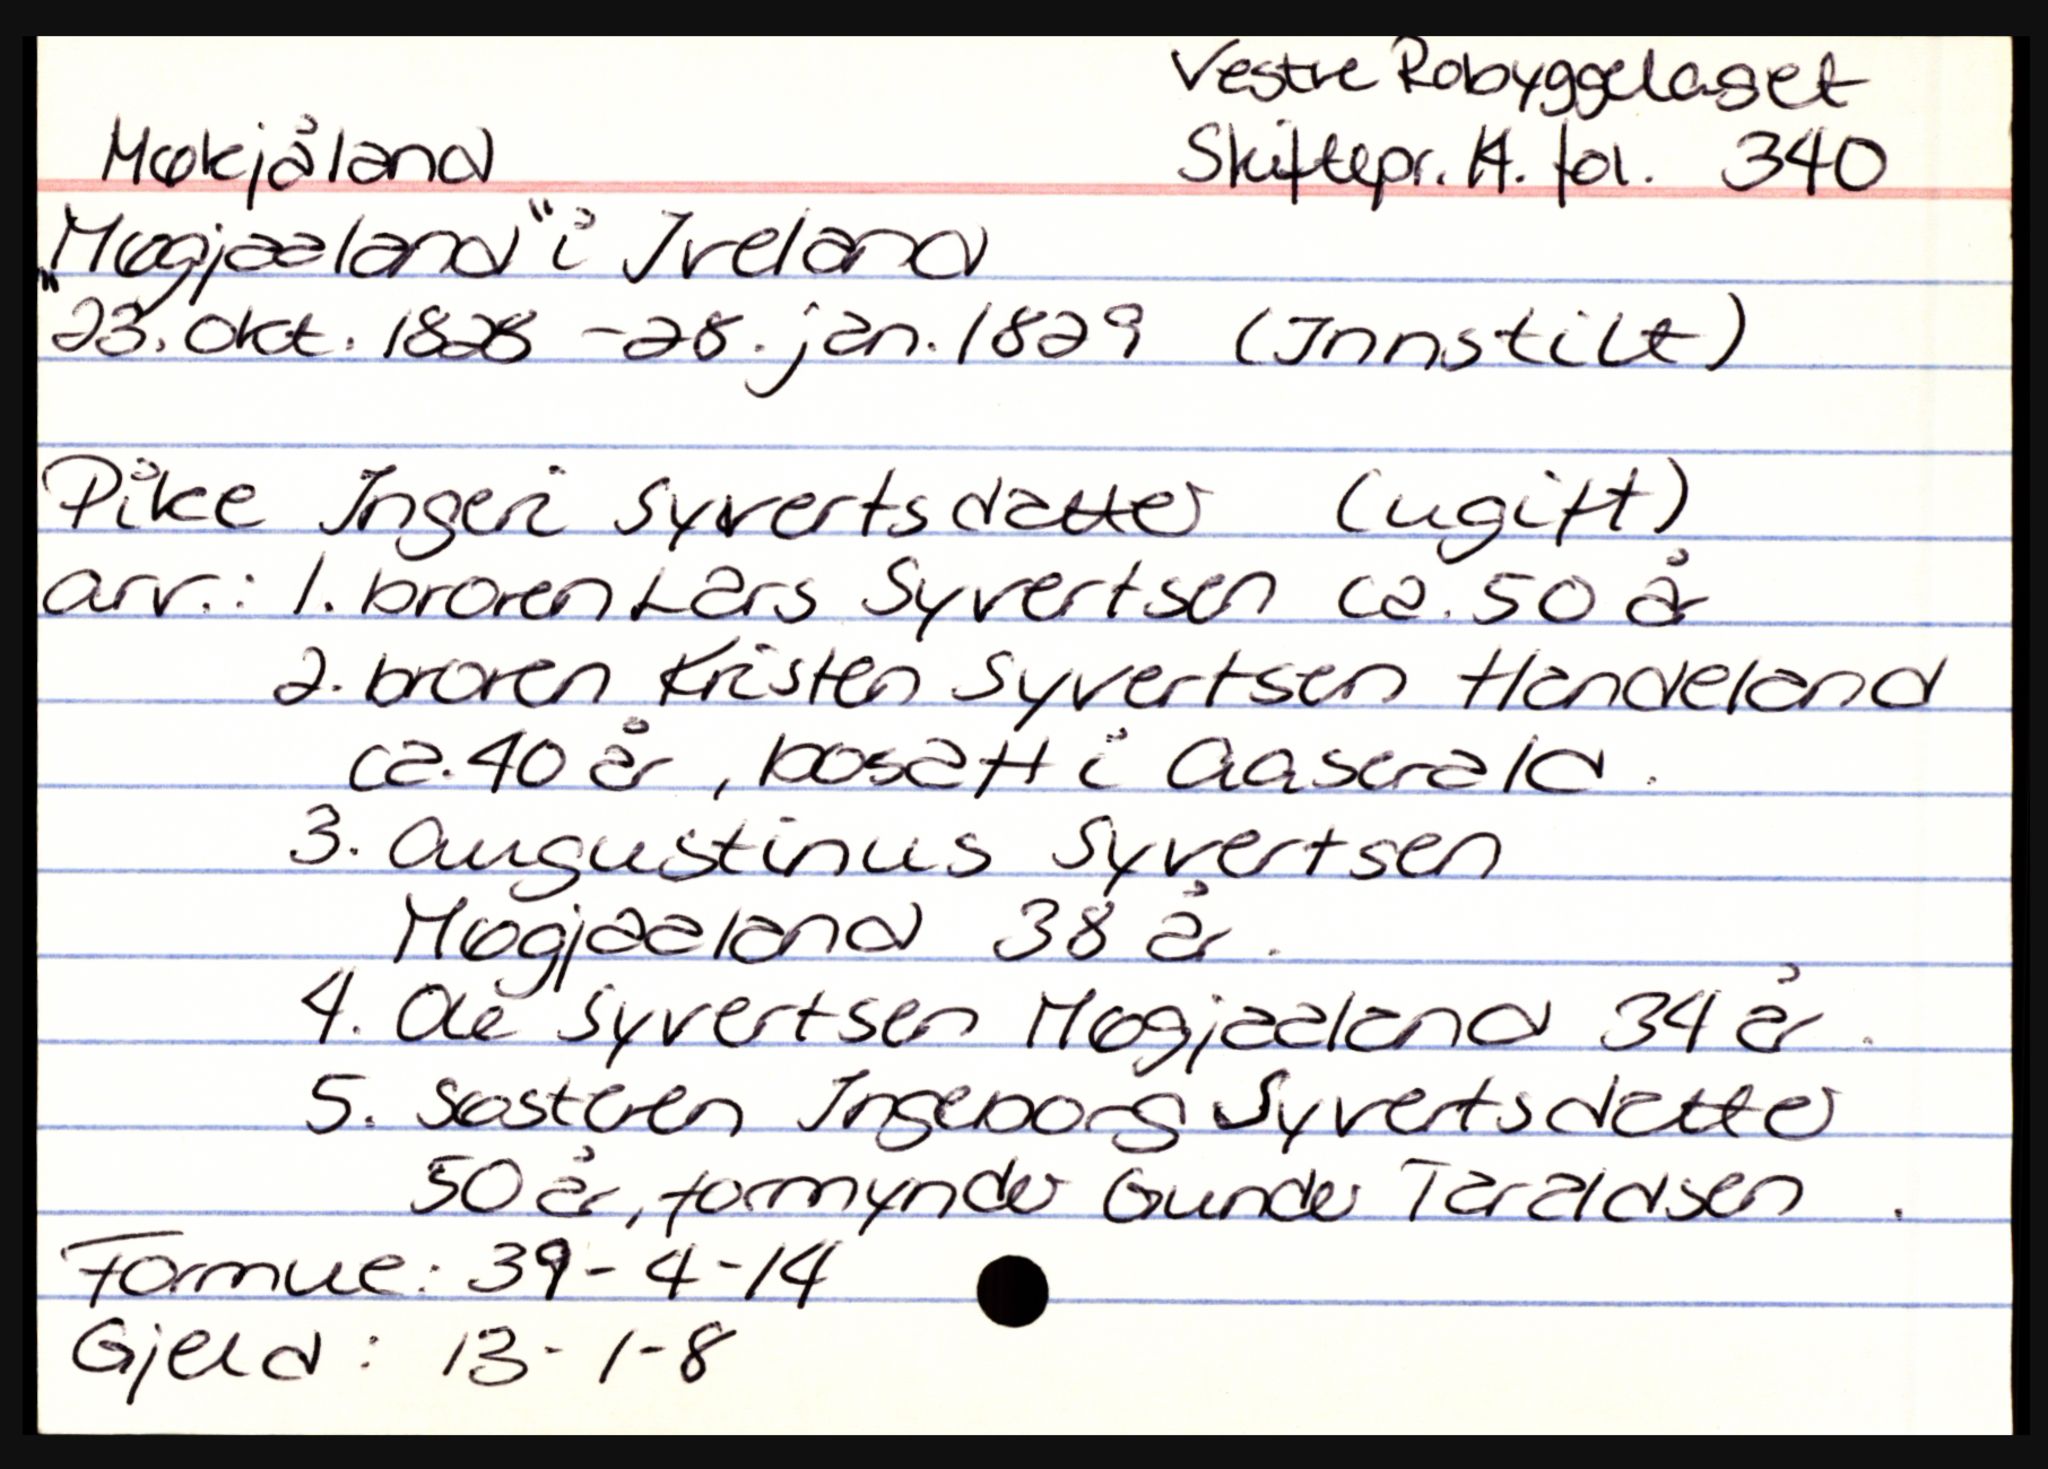 Vestre Robyggelaget
Møkjåland Skiftepr. 14. fol. 340
„Møgjaaland“ i Iveland
23. okt. 1828 - 28. jan. 1829 (Innstilt)
Pike Ingeri Syvertsdatter (ugift)
arv.: 1. broren Lars Syvertsen ca. 50 år
2. broren Kristen Syvertsen Handeland
ca. 40 år, bosatt i Aaserald.
3. Augustinus Syvertsen
Møgjaaland 38 år.
4. Ole Syvertsen Møgjaaland 34 år.
5. Søsteren Ingeborg Syvertsdatter
50 år, formynder Gunder Taraldsen.
Formue: 39 - 4 - 14
Gjeld: 13 - 1 - 8